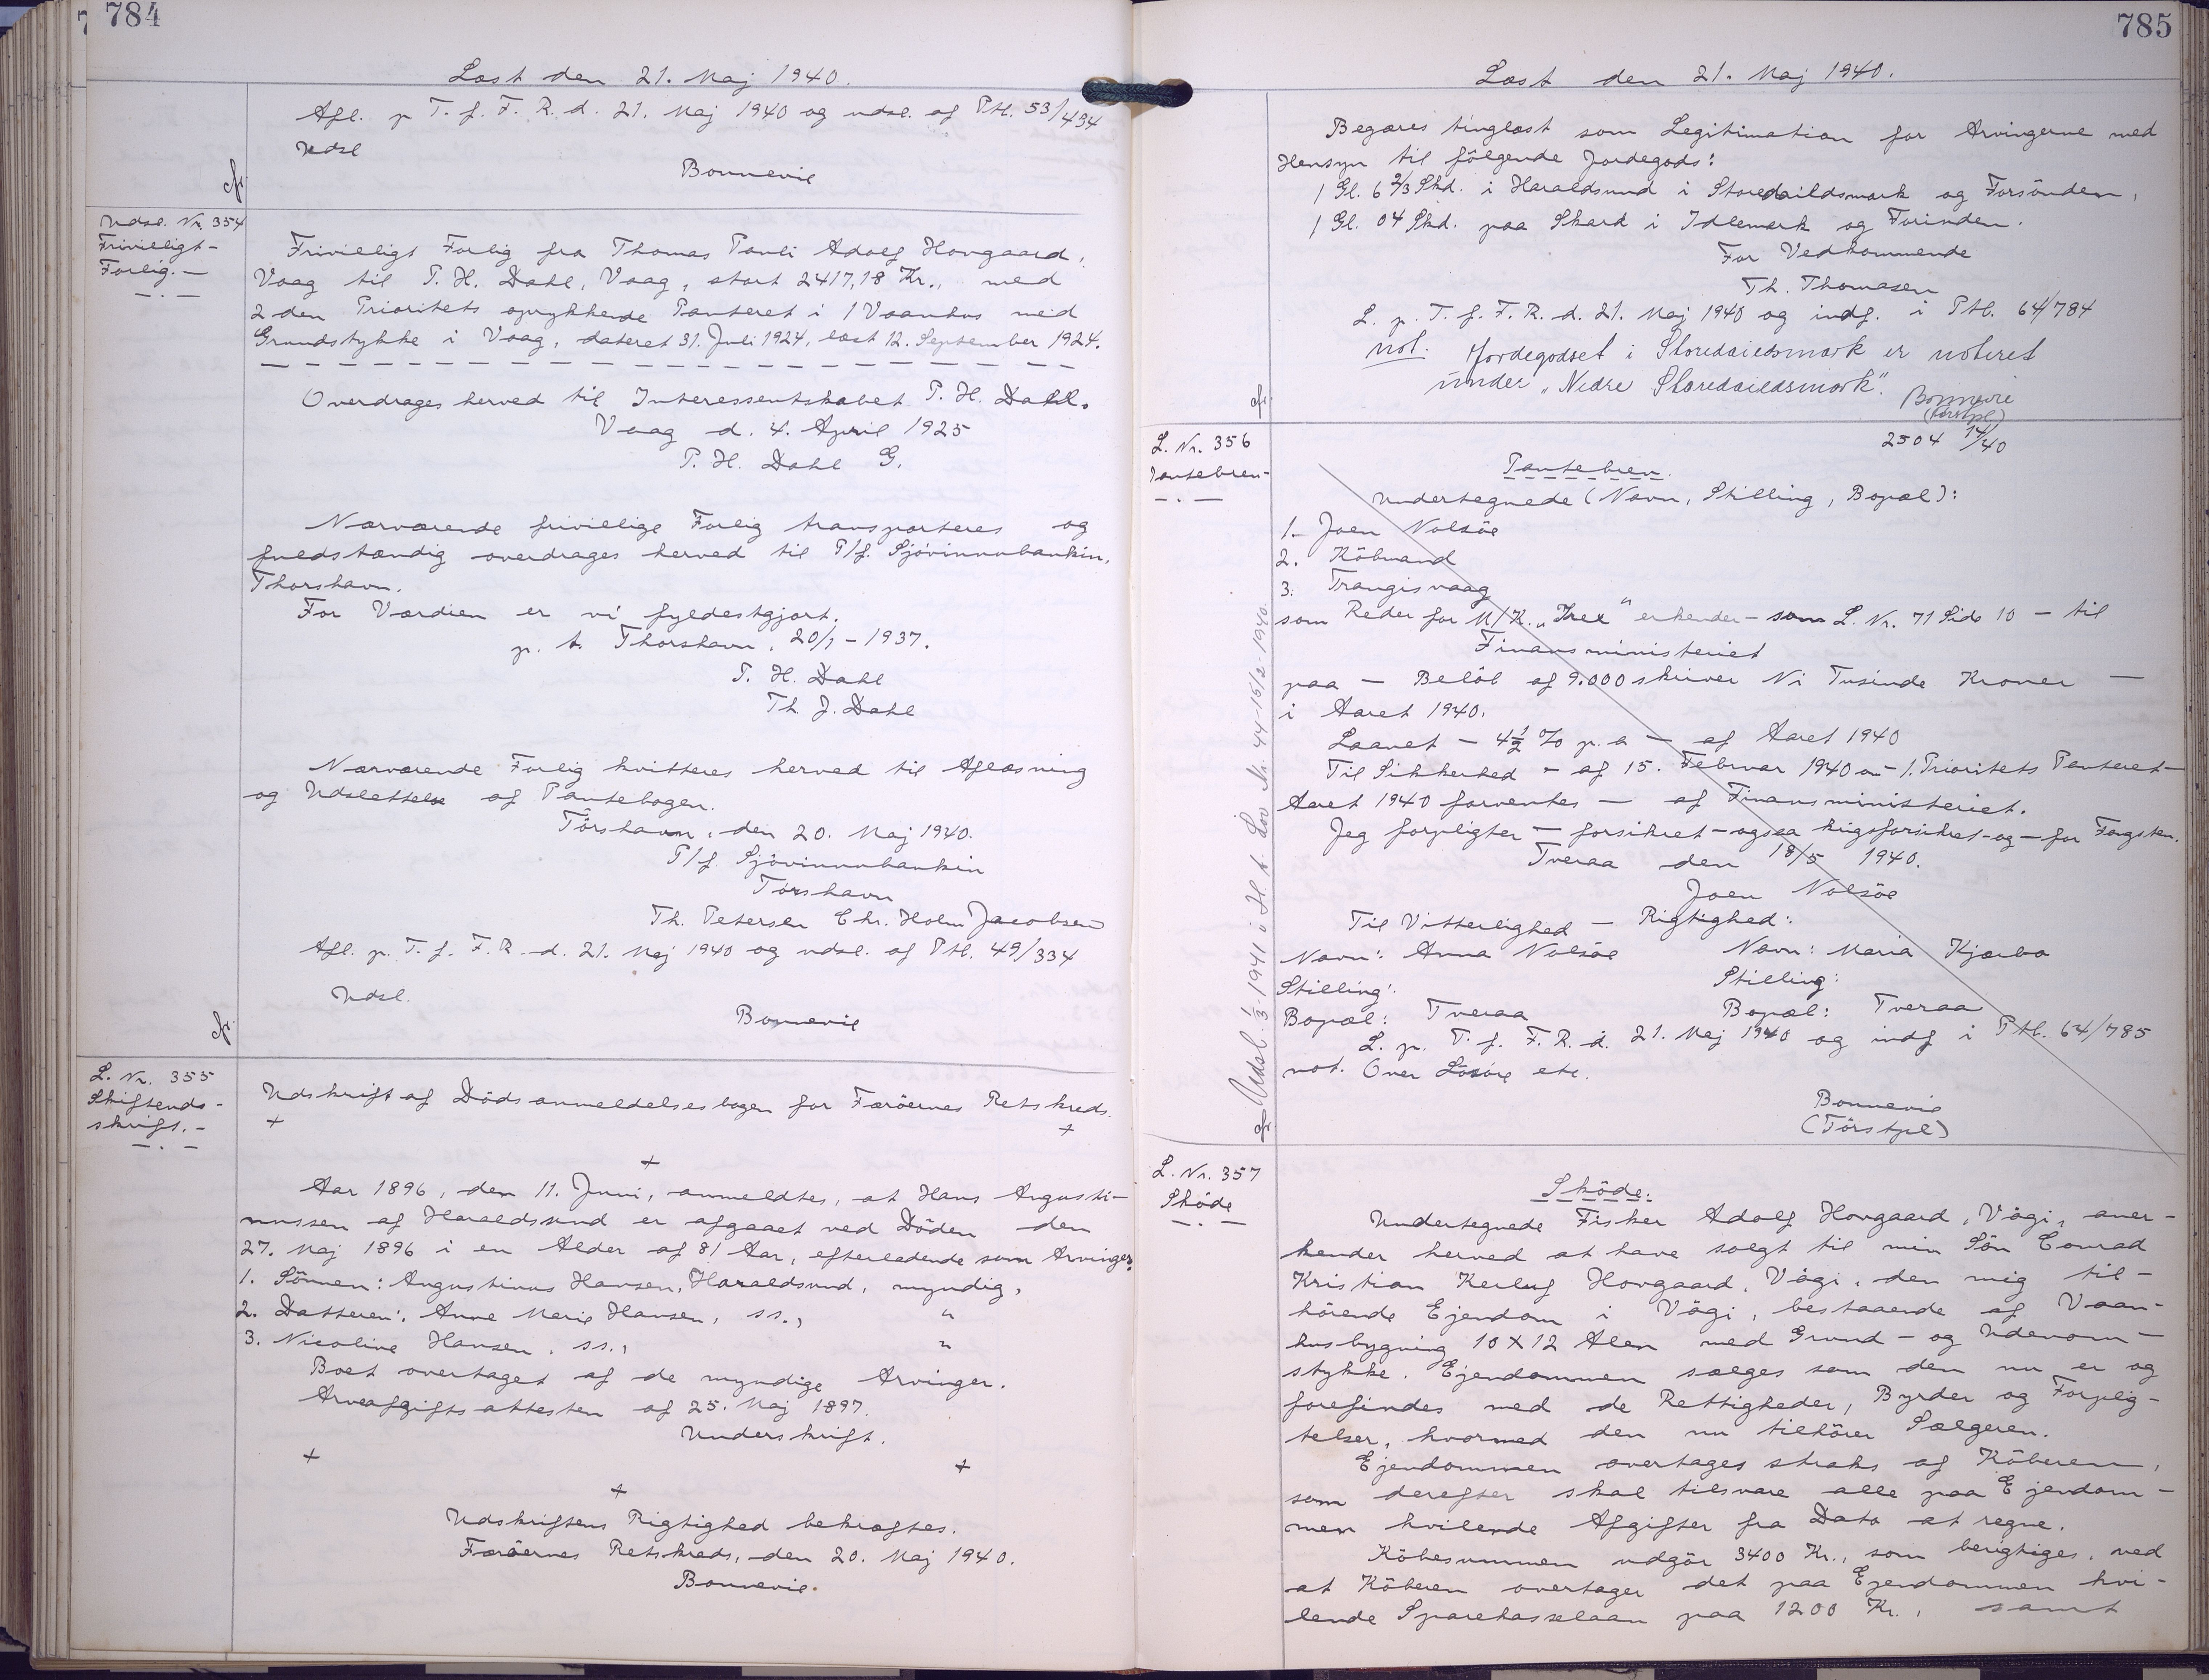 784
Læst den 21. Maj 1940.
Afl. p T. f. F. R. d. 21. Maj 1940 og udsl. af Ptb. 53/434
Udsl
Bonnevie
cfr.
Udsl. Nr. 354
Frivilligt-
Forlig. —
— . —
Frivilligt Forlig fra Thomas Pauli Adolf Hovgaard,
Vaag til P. H. Dahl, Vaag, stort 2417,18 Kr., med
2den Prioritets oprykkende Panteret i 1 Vaanhus med
Grundstykke i Vaag, dateret 31. Juli 1924, læst 12. September 1924.
Overdrages herved til Interessentskabet P. H. Dahl.
Vaag d. 4. April 1925
P. H. Dahl G.
Nærværende frivillige Forlig transporteres og
fuldstændig overdrages herved til P/f. Sjóvinnubankin,
Thorshavn.
For Værdien er vi fyldestgjort.
p. t. Thorshavn, 20/1 - 1937.
P. H. Dahl
Th. J. Dahl
Nærværende Forlig kvitteres herved til Aflæsning
og Udslettelse af Pantebogen.
Tórshavn, den 20. Maj 1940.
P/f. Sjóvinnubankin
Tórshavn
Th. Petersen Chr. Holm Jacobsen
Afl. p. T. f. F. R. d. 21. Maj 1940 og udsl. af Ptb. 49/334
Udsl.
Bonnevie
cfr.
L. Nr. 355
Skifteuds-
skrift. -
— . —
Udskrift af Dödsanmeldelsesbogen for Færöernes Retskreds.
+ +
+
Aar 1896, den 11. Juni, anmeldtes, at Hans Augusti-
nussen af Haraldsund er afgaaet ved Döden den
27. Maj 1896 i en Alder af 81 Aar, efterladende som Arvinger,
1. Sönnen: Augustinus Hansen, Haraldsund, myndig,
2. Datteren: Anne Marie Hansen, ss., "
3. Nicoline Hansen, ss., "
Boet overtaget af de myndige Arvinger.
Arveafgiftsattesten af 25. Maj 1897.
Underskrift.
+ +
+
Udskriftens Rigtighed bekræftes.
Færöernes Retskreds, den 20. Maj 1940.
Bonnevie.
785
Læst den 21. Maj 1940.
Begæres tinglæst som Legitimation for Arvingerne med
Hensyn til fölgende Jordegods:
1 Gl. 6 2/3 Skd. i Haraldsund i Storedaildsmark og Forsönden,
1 Gl. 04 Skd. paa Skard i Idlemark og Forinden.
For Vedkommende
Th. Thomasen
L. p. T. f. F. R. d. 21. Maj 1940 og indf. i Ptb. 64/784
not: Jordegodset i Storedaildsmark er noteret
under „Nedre Storedaildsmark".
Bonnevie
(Törstpl)
cfr.
L. Nr. 356
Pantebrev-
— . —
2504 14/40
Pantebrev.
Undertegnede (Navn, Stilling, Bopæl):
1. Joen Nolsöe
2. Köbmand
3. Trangisvaag
som Reder for M/K. „Trex" erkender - som L. Nr. 71 Side 10 — til
Finansministeriet
paa — Belöb af 9.000 skriver Ni Tusinde Kroner —
i Aaret 1940.
Laanet — 4 1/2 % p. a — af Aaret 1940
Til Sikkerhed - af 15. Februar 1940 om - 1. Prioritets Panteret —
Aaret 1940 forventes — af Finansministeriet.
Jeg forpligter — forsikret - ogsaa krigsforsikret - og — for Fangsten.
Tveraa den 18/5 1940.
Joen Nolsöe
Til Vitterlighed — Rigtighed:
Navn: Anna Nolsöe Navn: Maria Kjærbo
Stilling: Stilling:
Bopæl: Tveraa Bopæl: Tveraa
L. p. T. f. F. R. d. 21. Maj 1940 og indf i Ptb. 64/785
not. Over Lösöre etc.
Bonnevie
(Törstpl)
cfr Udsl. 1/3 1941 i H. t. Lov Nr. 44 - 15/2 1940.
L. Nr. 357
Sköde
— . —
Sköde.
Undertegnede Fisker Adolf Hovgaard, Vági, aner-
kender herved at have solgt til min Sön Conrad
Kristian Kerluf Hovgaard, Vági, den mig til-
hörende Ejendom i Vági, bestaaende af Vaan-
husbygning 10 X 12 Alen med Grund- og Udenom-
stykke. Ejendommen sælges som den nu er og
forefindes med de Rettigheder, Byrder og Forplig-
telser, hvormed den nu tilhörer Sælgeren.
Ejendommen overtages straks af Köberen,
som derefter skal tilsvare alle paa Ejendom-
men hvilende Afgifter fra Dato at regne.
Köbesummen udgör 3400 Kr., som berigtiges, ved
at Köberen overtager det paa Ejendommen hvi-
lende Sparekasselaan paa 1200 Kr., samt